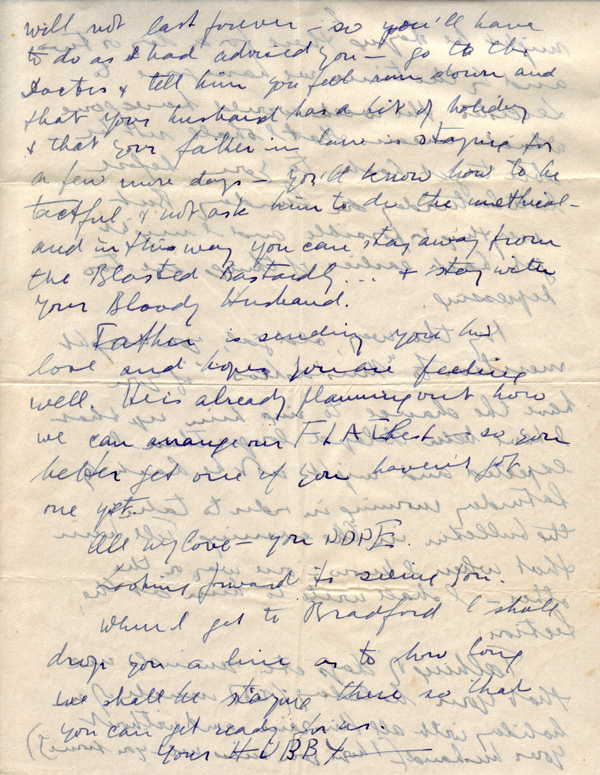 will not last forever - so you'll have
to do as I had advised you - go to the
Doctor & tell him you feel run down and
that your husband has a bit of holiday
& that your father in law is staying for
a few more days - you'll know how to be
tactful & not ask him to do the unethical -
and in this way you can stay away from
the Blasted Bastardly... & stay with
your Bloody Husband.
Father is sending you his
love and hopes you are feeling
well. He is already planning out how
we can arrange our FLAT best - so you
better get one if you haven't got
one yet.
All my love - you DOPE.
Looking forward to seeing you.
When I get to Bradford I shall
drop you a line as to how long
we shall be staying there so that
you can get ready for us.
Your HUBBY